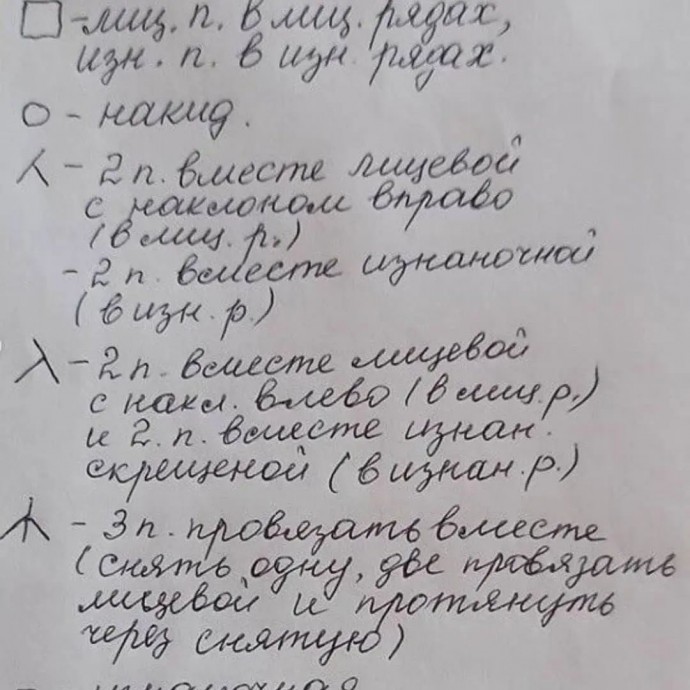 □ - лиц. п. в лиц. рядах,
изн. п. в изн. рядах.
О - накид.
⋌ - 2 п. вместе лицевой
с наклоном вправо
(в лиц. р.)
- 2 п. вместе изнаночной
(в изн. р.)
λ - 2 п. вместе лицевой
с накл. влево (в лиц. р.)
и 2. п. вместе изнан.
скрещеной (в изнан. р.)
- 3 п. провязать вместе
(снять одну, две провязать
лицевой и протянуть
через снятую)